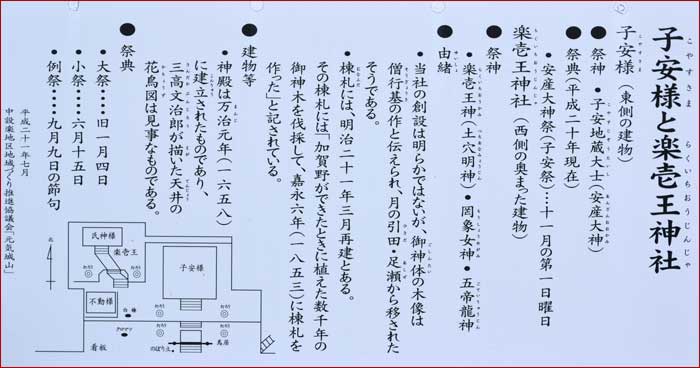 子安様と楽壱王神社
こやすさま らくいちおうじんじゃ
子安様（東側の建物）
●祭神・子安地蔵大士（安産大神）
●祭典（平成二十年現在）
・安産大神祭（子安祭）…十一月の第一日曜日
楽壱王神社（西側の奥まった建物）
●祭神
・楽壱王神（土穴明神）●罔象女神●五帝龍神
●由緒
・当社の創設は明らかではないが、御神体の木像は
僧行基の作と伝えられ、月の引田・足瀬から移された
そうである。
・棟札には、明治二十一年三月再建とある。
その棟札には「加賀野ができたときに植えた数千年の
御神木を伐採して、嘉永六年（一八五三）に棟札を
作った」と記されている。
●建物等
・神殿は万治元年（一六五八）
に建立されたものであり、
三高文治郎が描いた天井の
花鳥図は見事なものである。
●祭典
・大祭……旧一月四日
・小祭……六月十五日
・例祭……九月九日の節句
平成二十一年七月
中設楽地区地域づくり推進協議会「元気城山」
氏神様
楽壱王
子安様
不動様
白樺
看板
のぼり立
鳥居
北